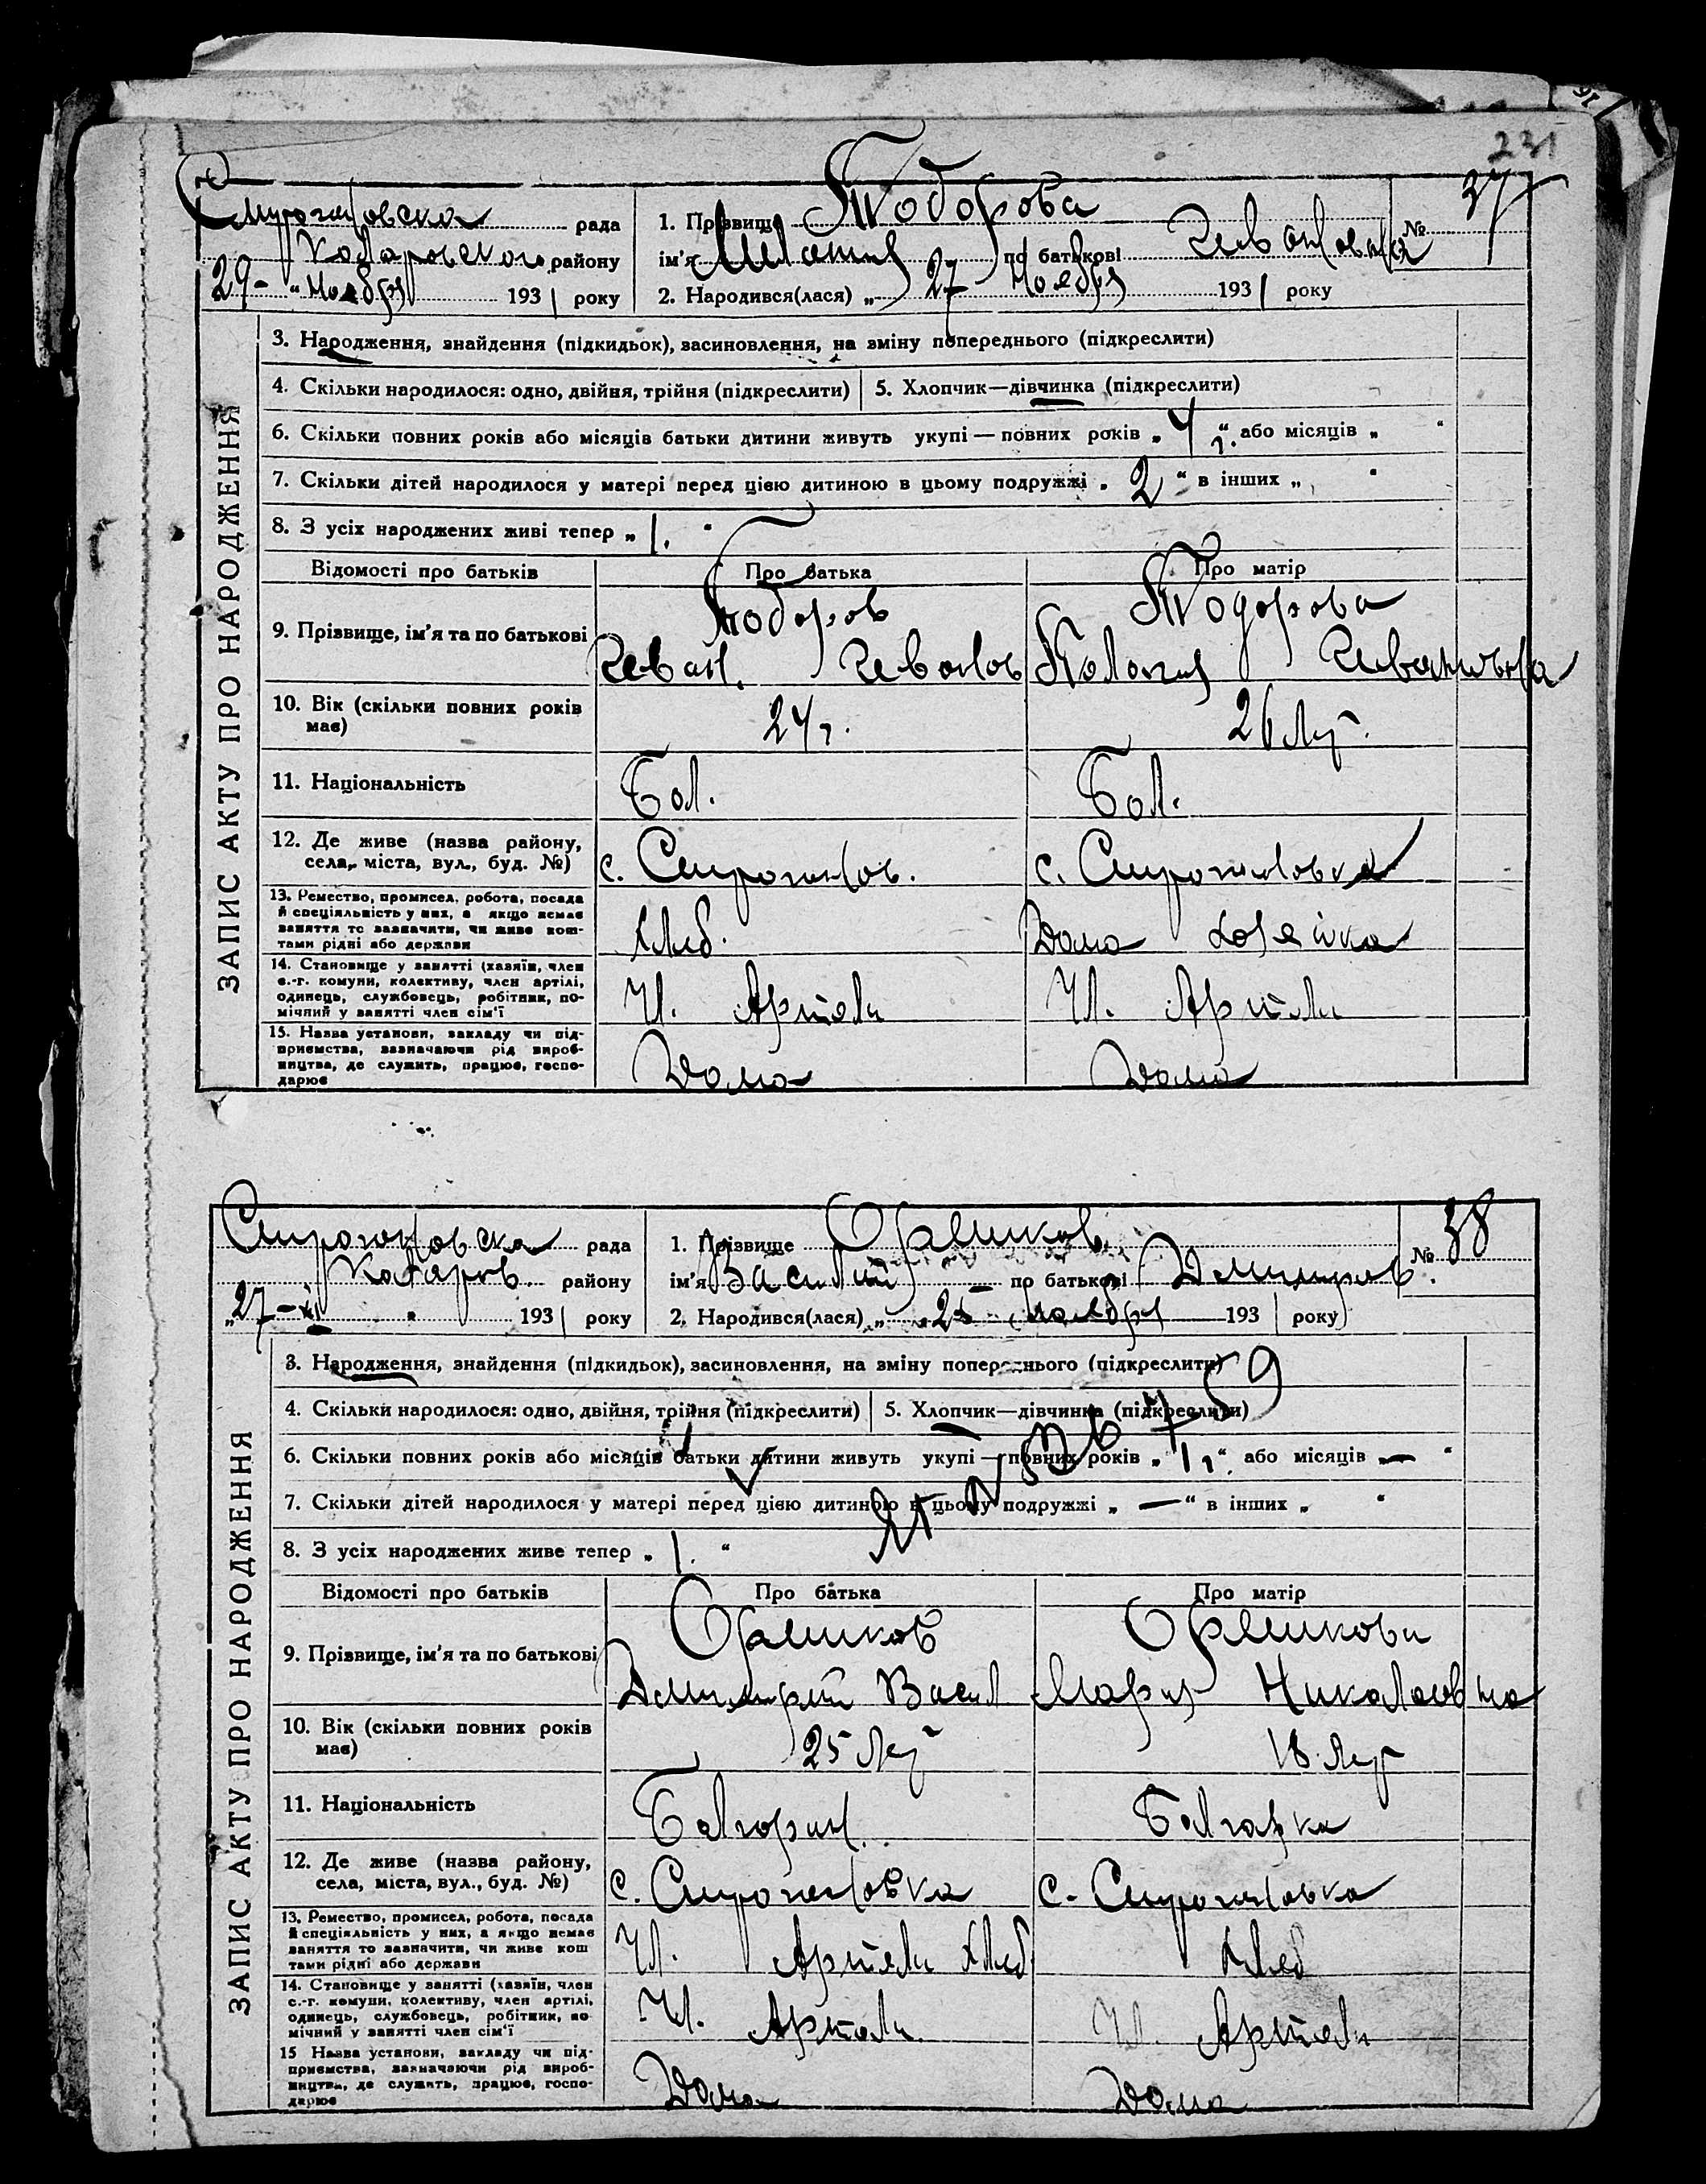 231
Строгановска рада
1. Прізвище Тодорова
№ 37
Коларовского району
ім'я по батькові Ивановна
29 - " Ноября 1931 року
2. Народився(лася) „ 27 Ноября 1931 року
ЗАПИС АКТУ ПРО НАРОДЖЕННЯ
3. Народження, знайдення (підкидьок), засиновлення, на зміну попереднього (підкреслити)
4. Скільки народилося: одно, двійня, трійня (підкреслити)
5. Хлопчик—дівчинка (підкреслити)
6. Скільки повних років або місяців батьки дитини живуть укупі — повних років „ 4 г. “ або місяців „ “
7. Скільки дітей народилося у матері перед цією дитиною в цьому подружжі „ 2 “ в інших „ “
8. З усіх народжених живі тепер „ 1. “
Відомості про батьків
Про батька
Про матір
9. Прізвище, ім'я та по батькові
Тодоров
Тодорова
Иван. Иванов
Ивановна
10. Вік (скільки повних років
має)
24 г.
26 лет.
11. Національність
Бол.
Бол.
12. Де живе (назва району,
села, міста, вул., буд. №)
с. Строганов.
с. Строгановка
13. Ремество, промисел, робота, посада
й спеціяльність у них, а якщо немає
заняття то зазначити, чи живе кош-
тами рідні або держави
хлеб.
Дома хозяйка
14. Становище у занятті (хазяїн, член
с.-г. комуни, колективу, член артілі,
одинець, службовець, робітник, по-
мічний у занятті член сім'ї
Чл. Артели
Чл. Артели
15. Назва установи, закладу чи під-
приємства, зазначаючи рід вироб-
ництва, де служить, працює, госпо-
дарює
Дома
Дома
Строгановска рада
1. Прізвище
№ 38
Коларов. району
ім'я Василий по батькові Димитров.
„27 - XI " 1931 року
2. Народився(лася) „ 25 ноября 1931 року
ЗАПИС АКТУ ПРО НАРОДЖЕННЯ
3. Народження, знайдення (підкидьок), засиновлення, на зміну попереднього (підкреслити)
4. Скільки народилося: одно, двійня, трійня (підкреслити)
5. Хлопчик—дівчинка (підкреслити)
6. Скільки повних років або місяців батьки дитини живуть укупі — повних років „ 1 г. “ або місяців — “
7. Скільки дітей народилося у матері перед цією дитиною в цьому подружжі „ — “ в інших „ “
8. З усіх народжених живе тепер „ 1. “
Відомості про батьків
Про батька
Про матір
9. Прізвище, ім'я та по батькові
Димитрий Васил
Мария Николаевна
10. Вік (скільки повних років
має)
25 лет
18 лет
11. Національність
Болгарин.
Болгарка
12. Де живе (назва району,
села, міста, вул., буд. №)
с. Строгановка
с. Строгановка
13. Ремество, промисел, робота, посада
й спеціяльність у них, а якщо немає
заняття то зазначити, чи живе кош
тами рідні або держави
Чл. Артели хлеб
хлеб
14. Становище у занятті (хазяїн, член
с.-г. комуни, колективу, член артілі,
одинець, службовець, робітник, по
мічний у занятті член сім'ї
Чл. Артели.
Чл. Артели
15 Назва установи, закладу чи під-
приємства, зазначаючи рід вироб-
ництва, де служить, працює, госпо-
дарює
Дома
Дома